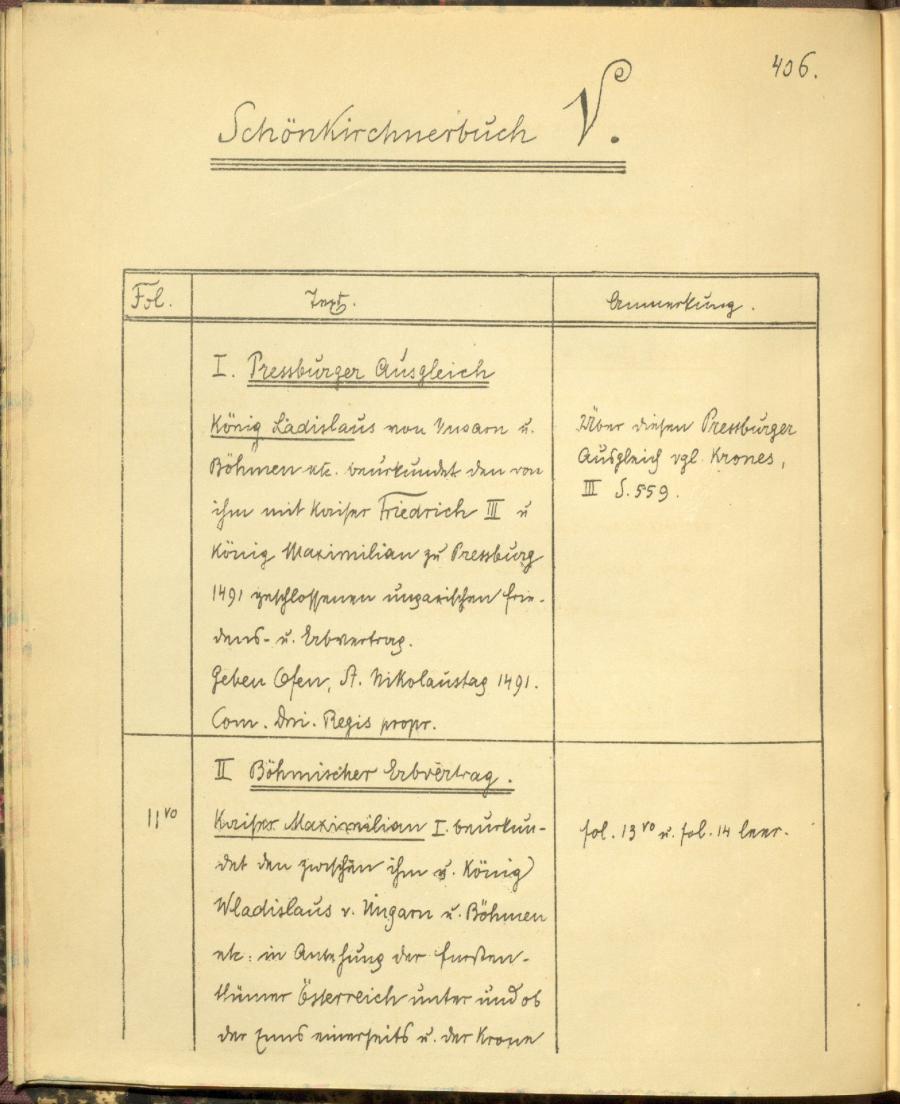 406.
Schönkirchnerbuch V.
Fol.
Text.
Anmerkung.
I. Pressburger Ausgleich
König Ladislaus von Ungarn u.
Böhmen etc. beurkundet den von
ihm mit Kaiser Friedrich III u
König Maximilian zu Pressburg
1491 geschlossenen ungarischen Frie-
dens- u. Erbvertrag.
Geben Ofen, St. Nikolaustag 1491.
Com. Dni. Regis propr.
Über diesen Pressburger
Ausgleich vgl. Krones,
III S. 559.
II Böhmischer Erbvertrag.
11vo
Kaiser Maximilian I. beurkun-
det den zwischen ihm u. König
Wladislaus v. Ungarn u. Böhmen
etc: in Antehung der Fursten-
thümer Österreich unter und ob
der Enns einerseits u. der Krone
fol. 13vo u. fol. 14 leer.